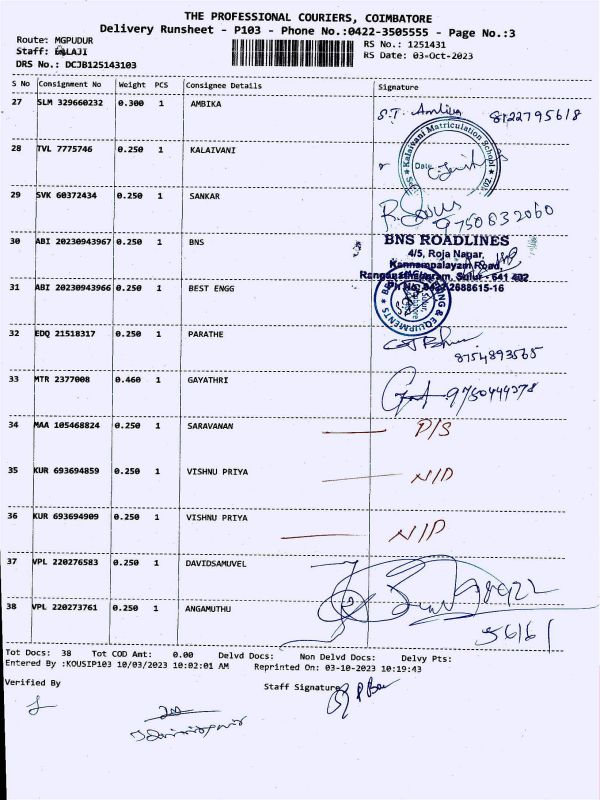 THE PROFESSIONAL COURIERS, COIMBATORE
Delivery Runsheet - P103 - Phone No.:0422-3505555 - Page No.:3
Route: MGPUDUR RS No.: 1251431
Staff: BALAJI RS Date: 03-Oct-2023
DRS No.: DCJB125143103
S No Consignment No Weight PCS Consignee Details Signature
27 SLM 329660232 0.300 1 AMBIKA S.T. Ambika 8122795618
28 TVL 7775746 0.250 1 KALAIVANI Kalaivani Matriculation School Date
29 SVK 60372434 0.250 1 SANKAR 9750832060
30 ABI 20230943967 0.250 1 BNS BNS ROADLINES
4/5, Roja Nagar,
Kannampalayam Road,
Sulur - 641 402
31 ABI 20230943966 0.250 1 BEST ENGG Ph No: 0422-2688615-16
& EQUIPMENTS
32 EDQ 21518317 0.250 1 PARATHE 8754893565
33 MTR 2377008 0.460 1 GAYATHRI 9750444278
34 MAA 105468824 0.250 1 SARAVANAN P/S
35 KUR 693694859 0.250 1 VISHNU PRIYA N/D
36 KUR 693694909 0.250 1 VISHNU PRIYA N/D
37 VPL 220276583 0.250 1 DAVIDSAMUVEL
38 VPL 220273761 0.250 1 ANGAMUTHU 56161
Tot Docs: 38 Tot COD Amt: 0.00 Delvd Docs: Non Delvd Docs: Delvy Pts:
Entered By :KOUSIP103 10/03/2023 10:02:01 AM Reprinted On: 03-10-2023 10:19:43
Verified By Staff Signature